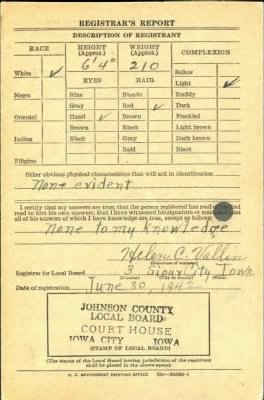 REGISTRAR'S REPORT
DESCRIPTION OF REGISTRANT
RACE HEIGHT (Approx.) WEIGHT (Approx.) COMPLEXION
6' 4" 210
White ✓ EYES HAIR Sallow
Light ✓
Negro Blue Blonde Ruddy
Gray Red ✓ Dark
Oriental Hazel ✓ Brown Freckled
Brown Black Light brown
Indian Black Gray Dark brown
Bald Black
Filipino
Other obvious physical characteristics that will aid in identification
None evident
I certify that my answers are true; that the person registered has read or has had
read to him his own answers; that I have witnessed his signature or mark and that
all of his answers of which I have knowledge are true, except as follows:
None to my knowledge
Helen C. Vallin
(Signature of registrar)
Registrar for Local Board 3 Sioux City Iowa
(Number) (City or county) (State)
Date of registration June 30, 1942
JOHNSON COUNTY
LOCAL BOARD
COURT HOUSE
IOWA CITY IOWA
(STAMP OF LOCAL BOARD)
(The stamp of the Local Board having jurisdiction of the registrant
shall be placed in the above space)
U. S. GOVERNMENT PRINTING OFFICE